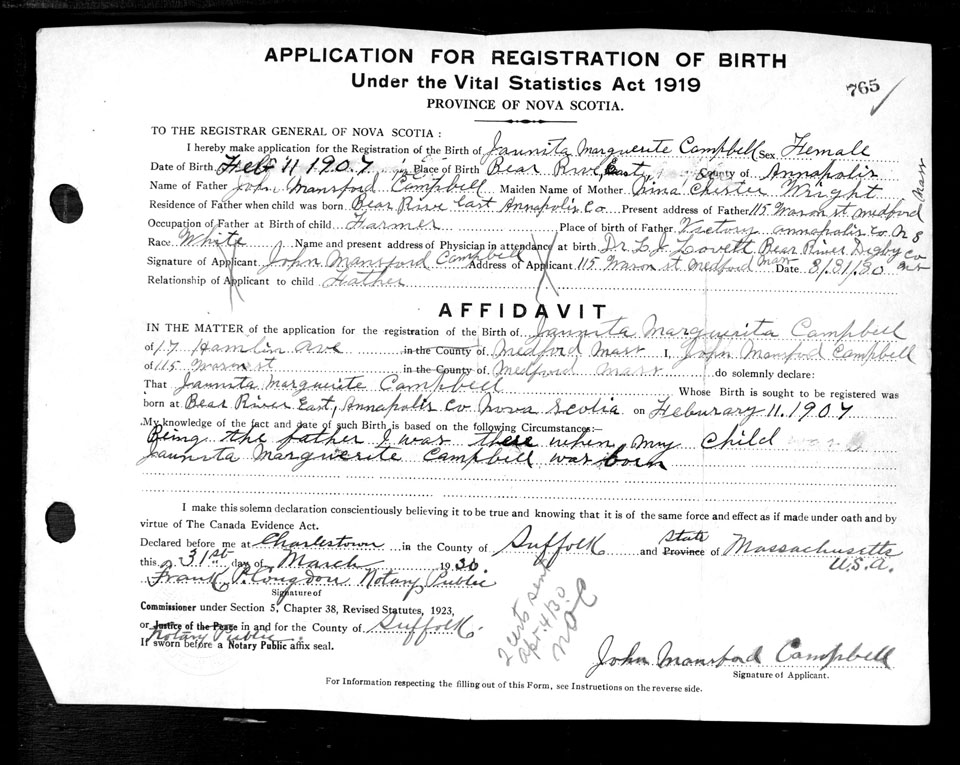 APPLICATION FOR REGISTRATION OF BIRTH
Under the Vital Statistics Act 1919
765
PROVINCE OF NOVA SCOTIA.
TO THE REGISTRAR GENERAL OF NOVA SCOTIA :
I hereby make application for the Registration of the Birth of Jaunita Marguerite Campbell Sex Female
Date of Birth Feb 11 1907 Place of Birth Bear River East, County of Annapolis
Name of Father John Mansford Campbell Maiden Name of Mother Chester Wright
Residence of Father when child was born Bear River East Annapolis Co Present address of Father 115 Mason st Medford Mass
Occupation of Father at Birth of child Farmer Place of birth of Father Victory Annapolis Co. N S
Race White Name and present address of Physician in attendance at birth Dr L J Lovett Bear River Digby Co N S
Signature of Applicant John Mansford Campbell Address of Applicant 115 Mason st Medford Mass Date 3/31/30
Relationship of Applicant to child Father
AFFIDAVIT
IN THE MATTER of the application for the registration of the Birth of Jaunita Marguerita Campbell
of 17 Hamlin Ave in the County of Medford Mass I, John Mansford Campbell
of 115 Mason st in the County of Medford Mass do solemnly declare:
That Jaunita Marguerite Campbell Whose Birth is sought to be registered was
born at Bear River East, Annapolis Co Nova Scotia on Feburary 11. 1907
My knowledge of the fact and date of such Birth is based on the following Circumstances:—
Being the father I was there when my child was
Jaunita Marguerite Campbell was born
I make this solemn declaration conscientiously believing it to be true and knowing that it is of the same force and effect as if made under oath and by
virtue of The Canada Evidence Act.
Declared before me at Charlestown in the County of Suffolk and Province State of Massachusetts
this 31st day of March 1930. U.S.A.
Frank P. Congdon Notary Public
Signature of
Commissioner under Section 5, Chapter 38, Revised Statutes, 1923,
or Justice of the Peace in and for the County of Suffolk
Notary Public
If sworn before a Notary Public affix seal.
2 certs sent
Apr 4/30
John Mansford Campbell
Signature of Applicant.
For Information respecting the filling out of this Form, see Instructions on the reverse side.